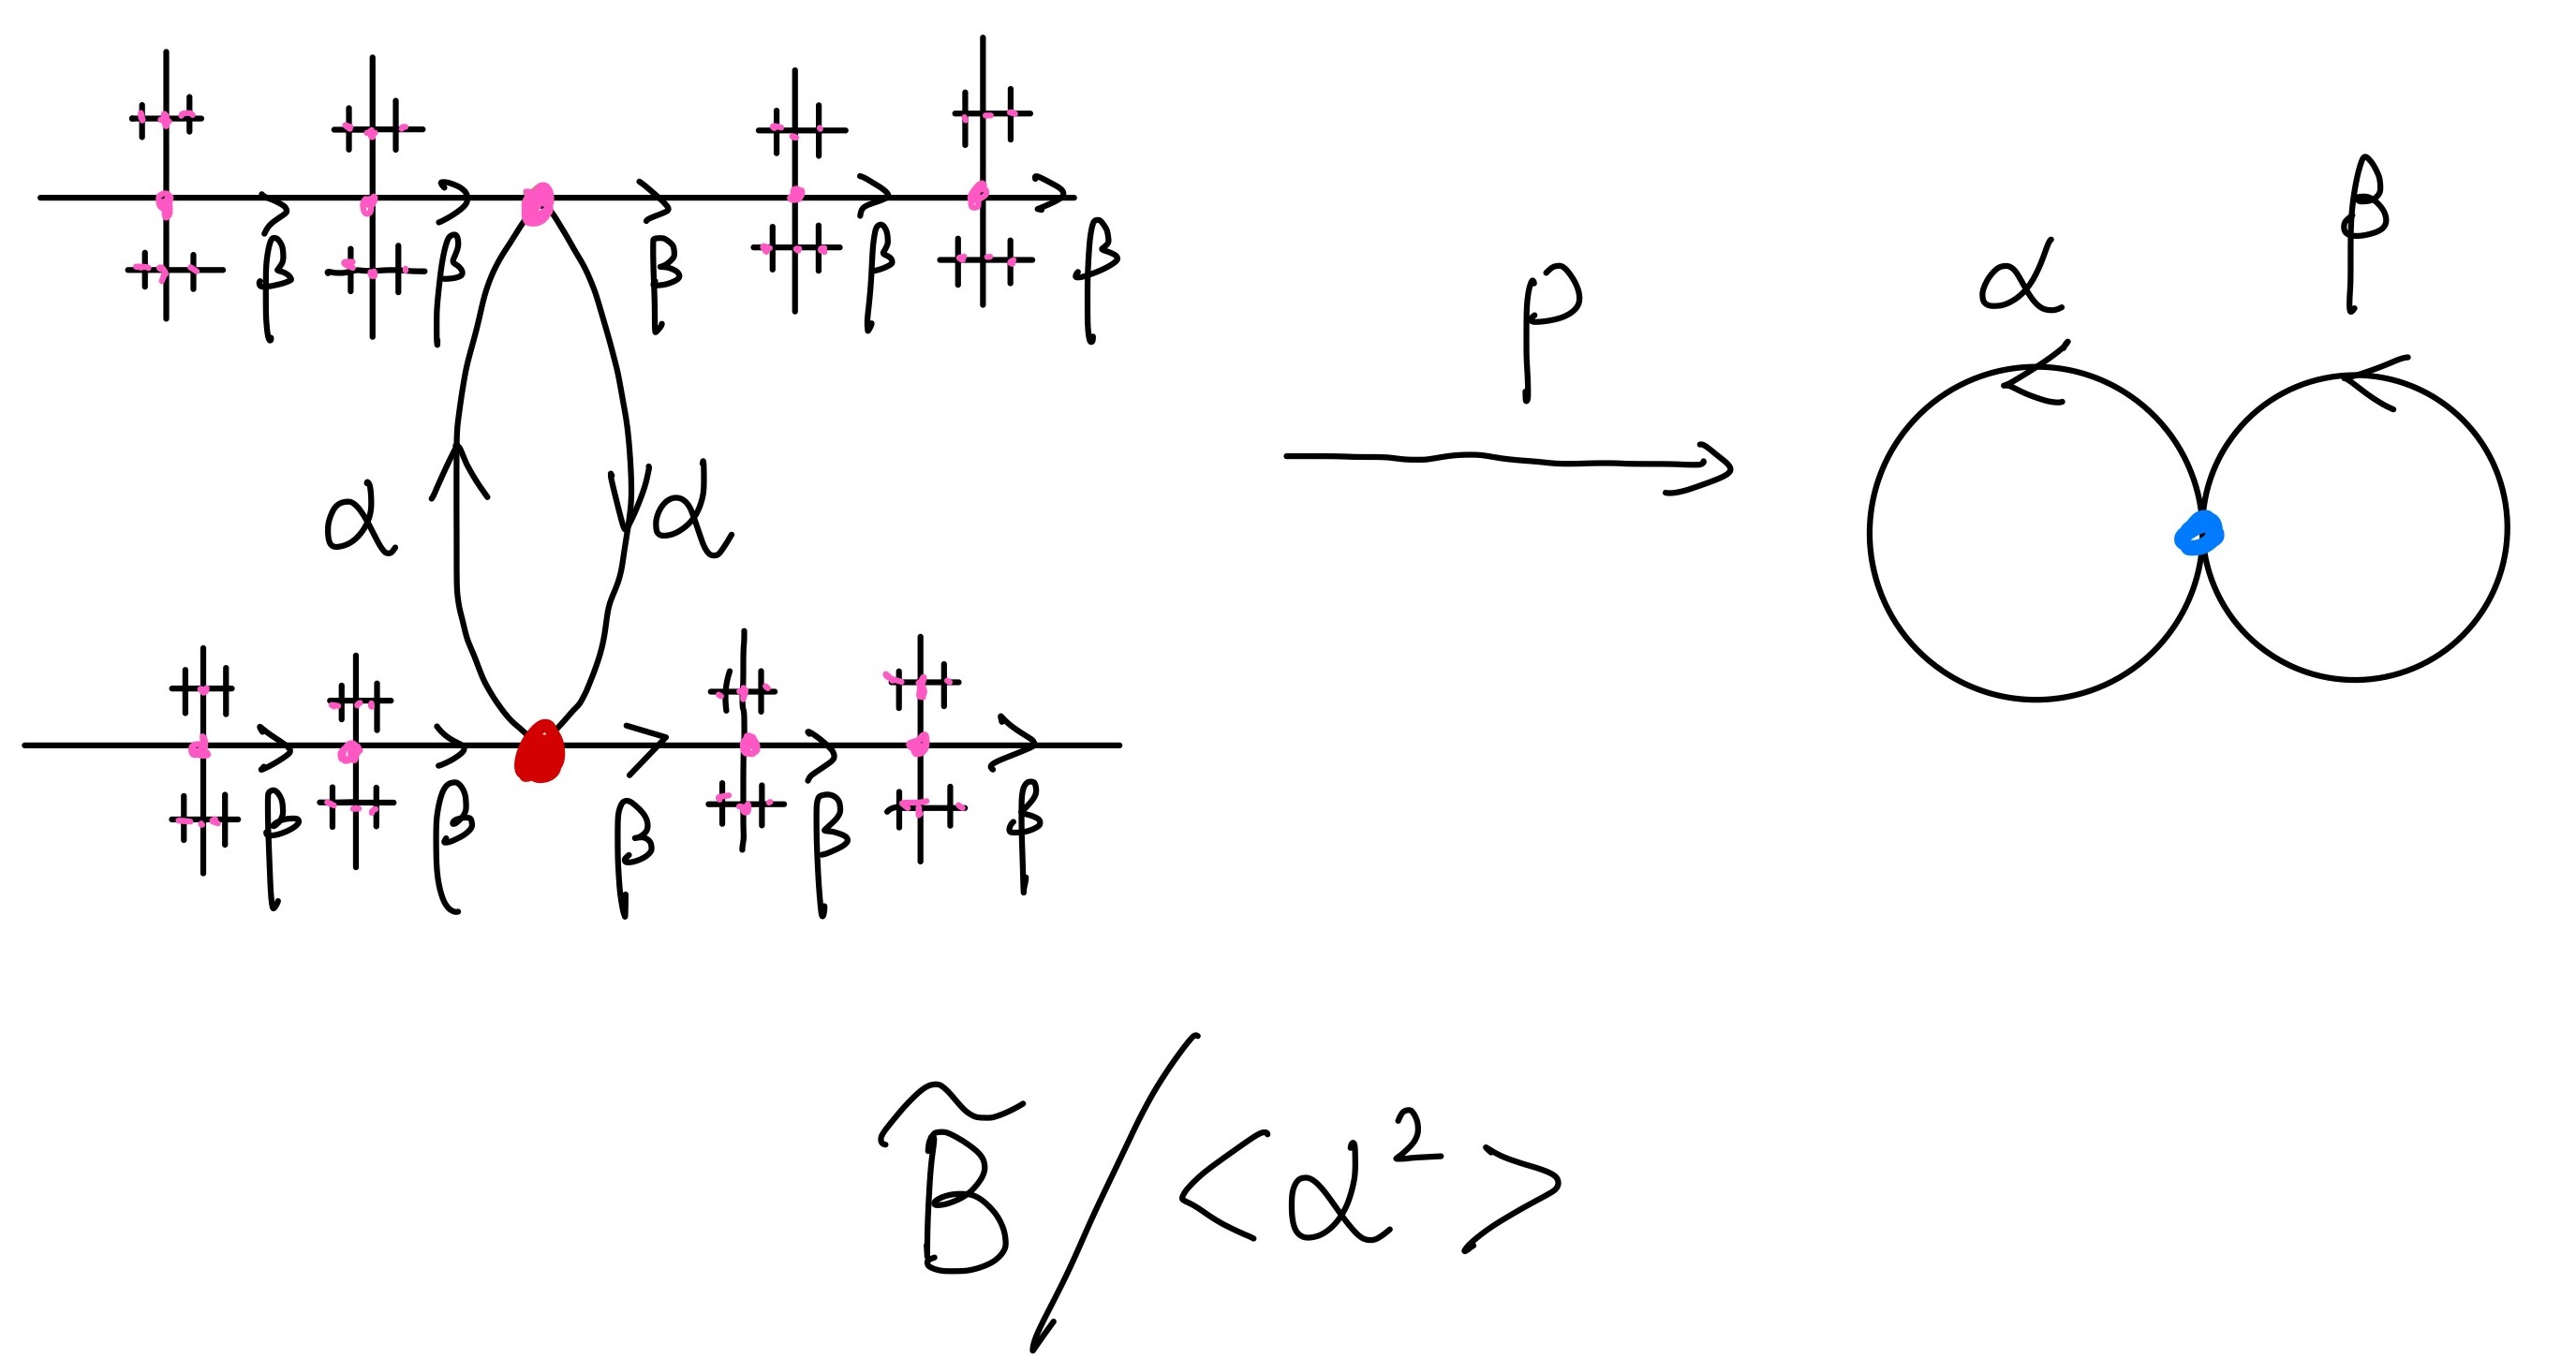 β β β β β
α α
β β β β β
P
α β
B̃/<α²>